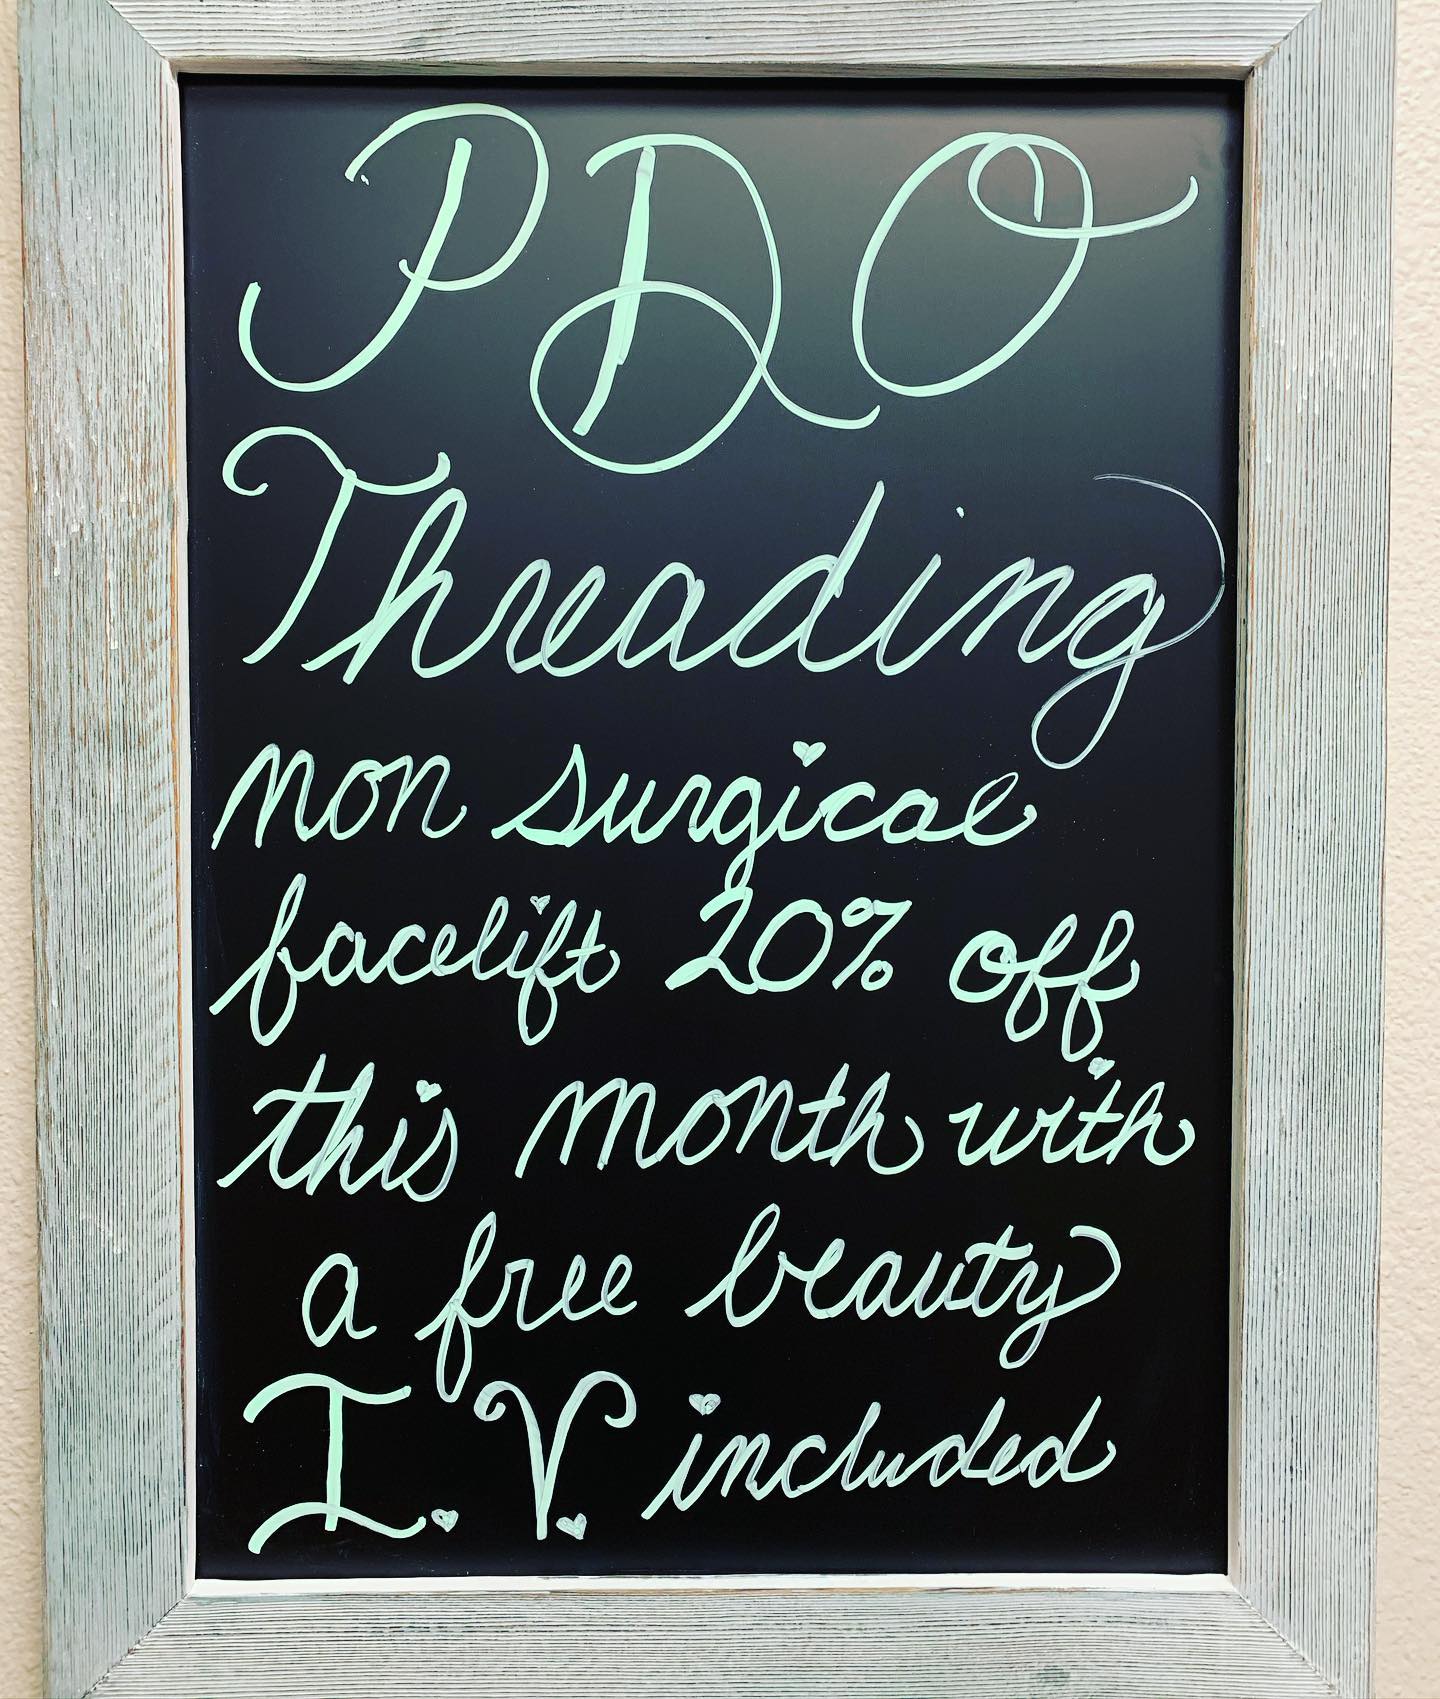 PDO
Threading
non surgical
facelift 20% off
this month with
a free beauty
I.V. included